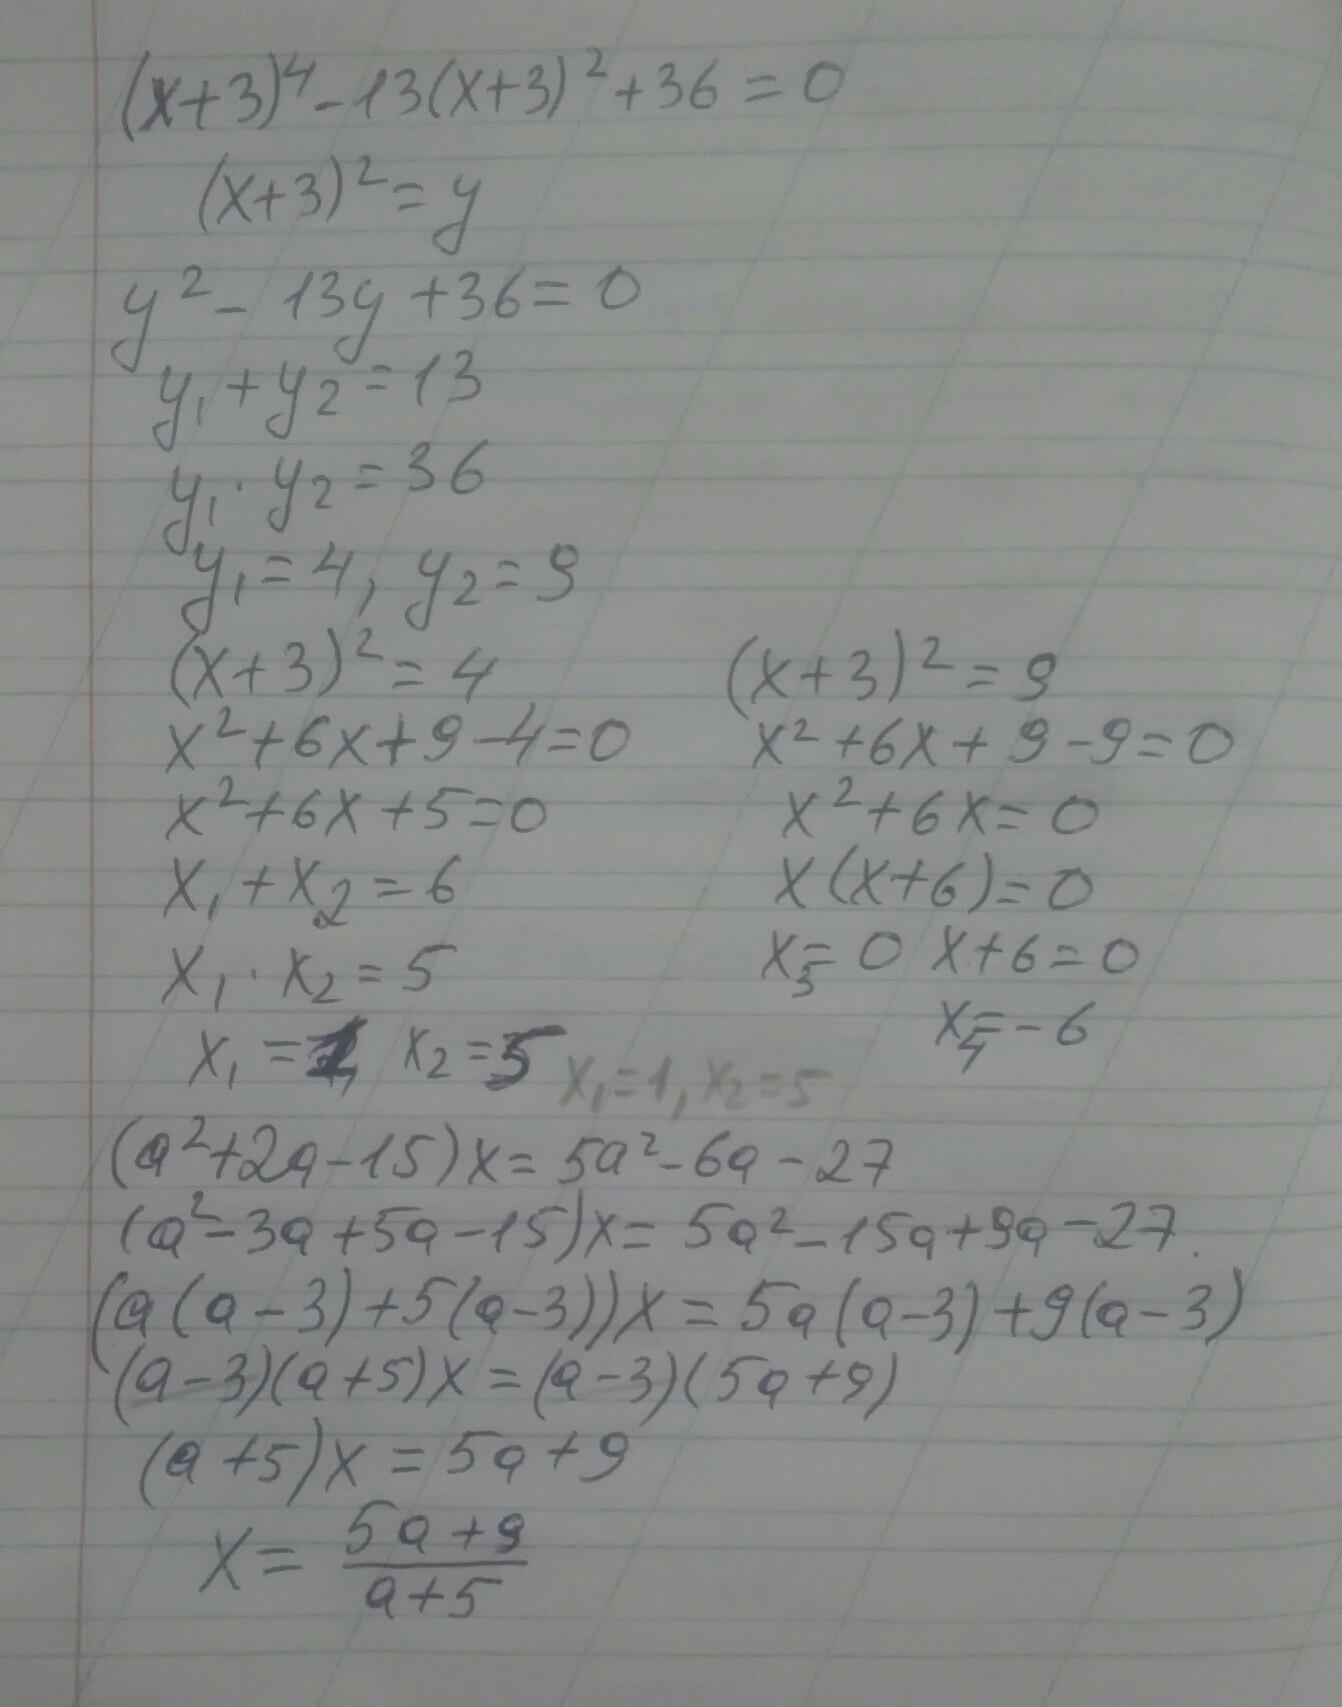 (x+3)⁴-13(x+3)²+36=0
(x+3)²=y
y²-13y+36=0
y₁+y₂=13
y₁·y₂=36
y₁=4, y₂=9
(x+3)²=4
x²+6x+9-4=0
x²+6x+5=0
x₁+x₂=6
x₁·x₂=5
x₁=1, x₂=5 x₁=1, x₂=5
(x+3)²=9
x²+6x+9-9=0
x²+6x=0
x(x+6)=0
x₃=0 x+6=0
x₄=-6
(a²+2a-15)x=5a²-6a-27
(a²-3a+5a-15)x=5a²-15a+9a-27.
(a(a-3)+5(a-3))x=5a(a-3)+9(a-3)
(a-3)(a+5)x=(a-3)(5a+9)
(a+5)x=5a+9
x=(5a+9)/(a+5)